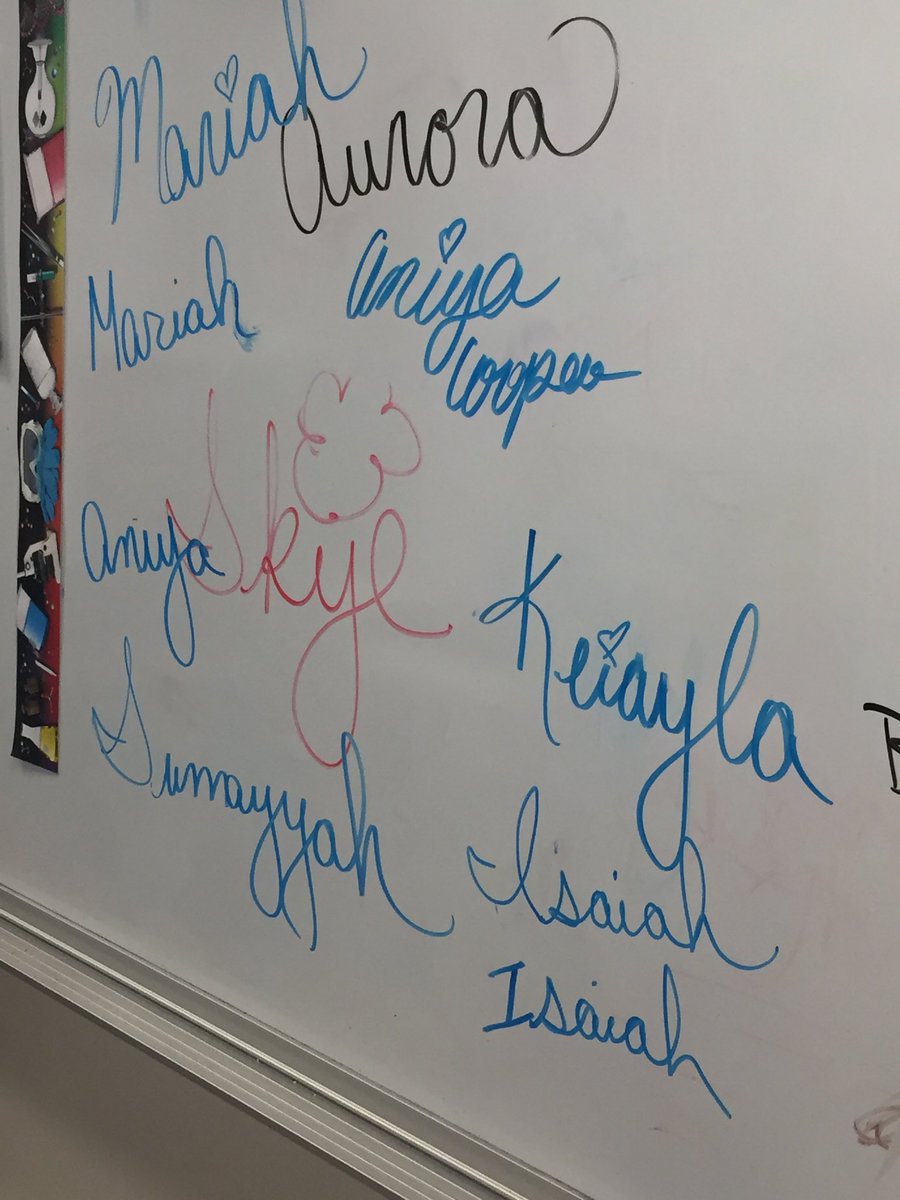 Mariah
Aurora
Mariah
Aniya
Cooper
Skye
Aniya
Keiayla
Sumayyah
Isaiah
Isaiah